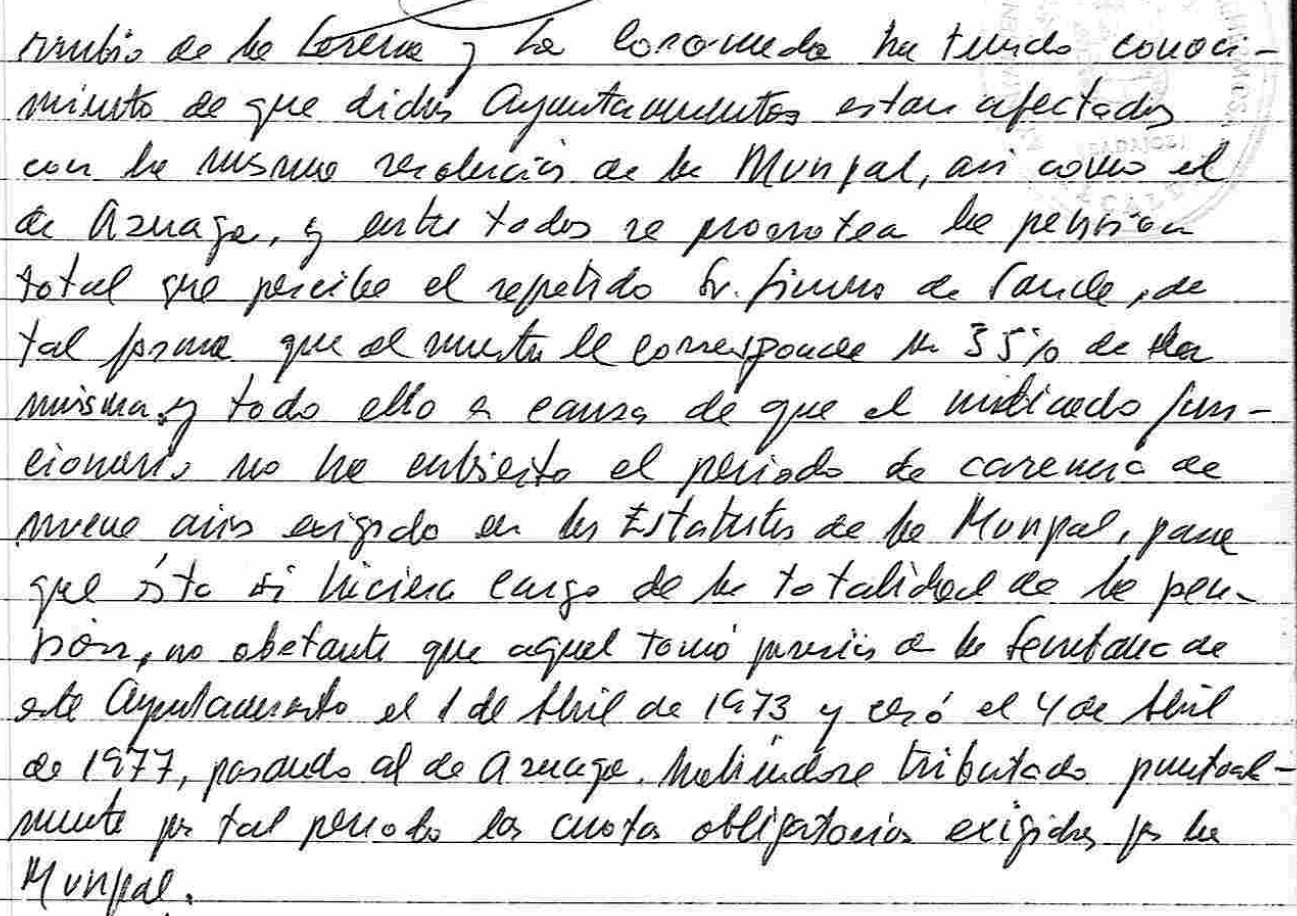 de la Serena y La Coronada ha tenido conoci-
miento de que dichos Ayuntamientos estan afectados
con la misma resolución de la Munpal, asi como el
de Azuaga, y entre todos se prorrotea la pensión
total que percibe el repetido Sr. de Tancle, de
tal forma que al nuestro le corresponde un 35% de la
misma, y todo ello a causa de que el indicado fun-
cionario no ha cubierto el periodo de carencia de
nueve años exigido en los Estatutos de la Munpal, para
que ésta se hiciera cargo de la totalidad de la pen-
sión, no obstante que aquel tomó posesión de la Secretaría de
este Ayuntamiento el 1 de Abril de 1973 y cesó el 4 de Abril
de 1977, pasando al de Azuaga. Habiéndose tributado puntoal-
mente por tal periodo las cuotas obligatorias exigidas por la
Munpal.